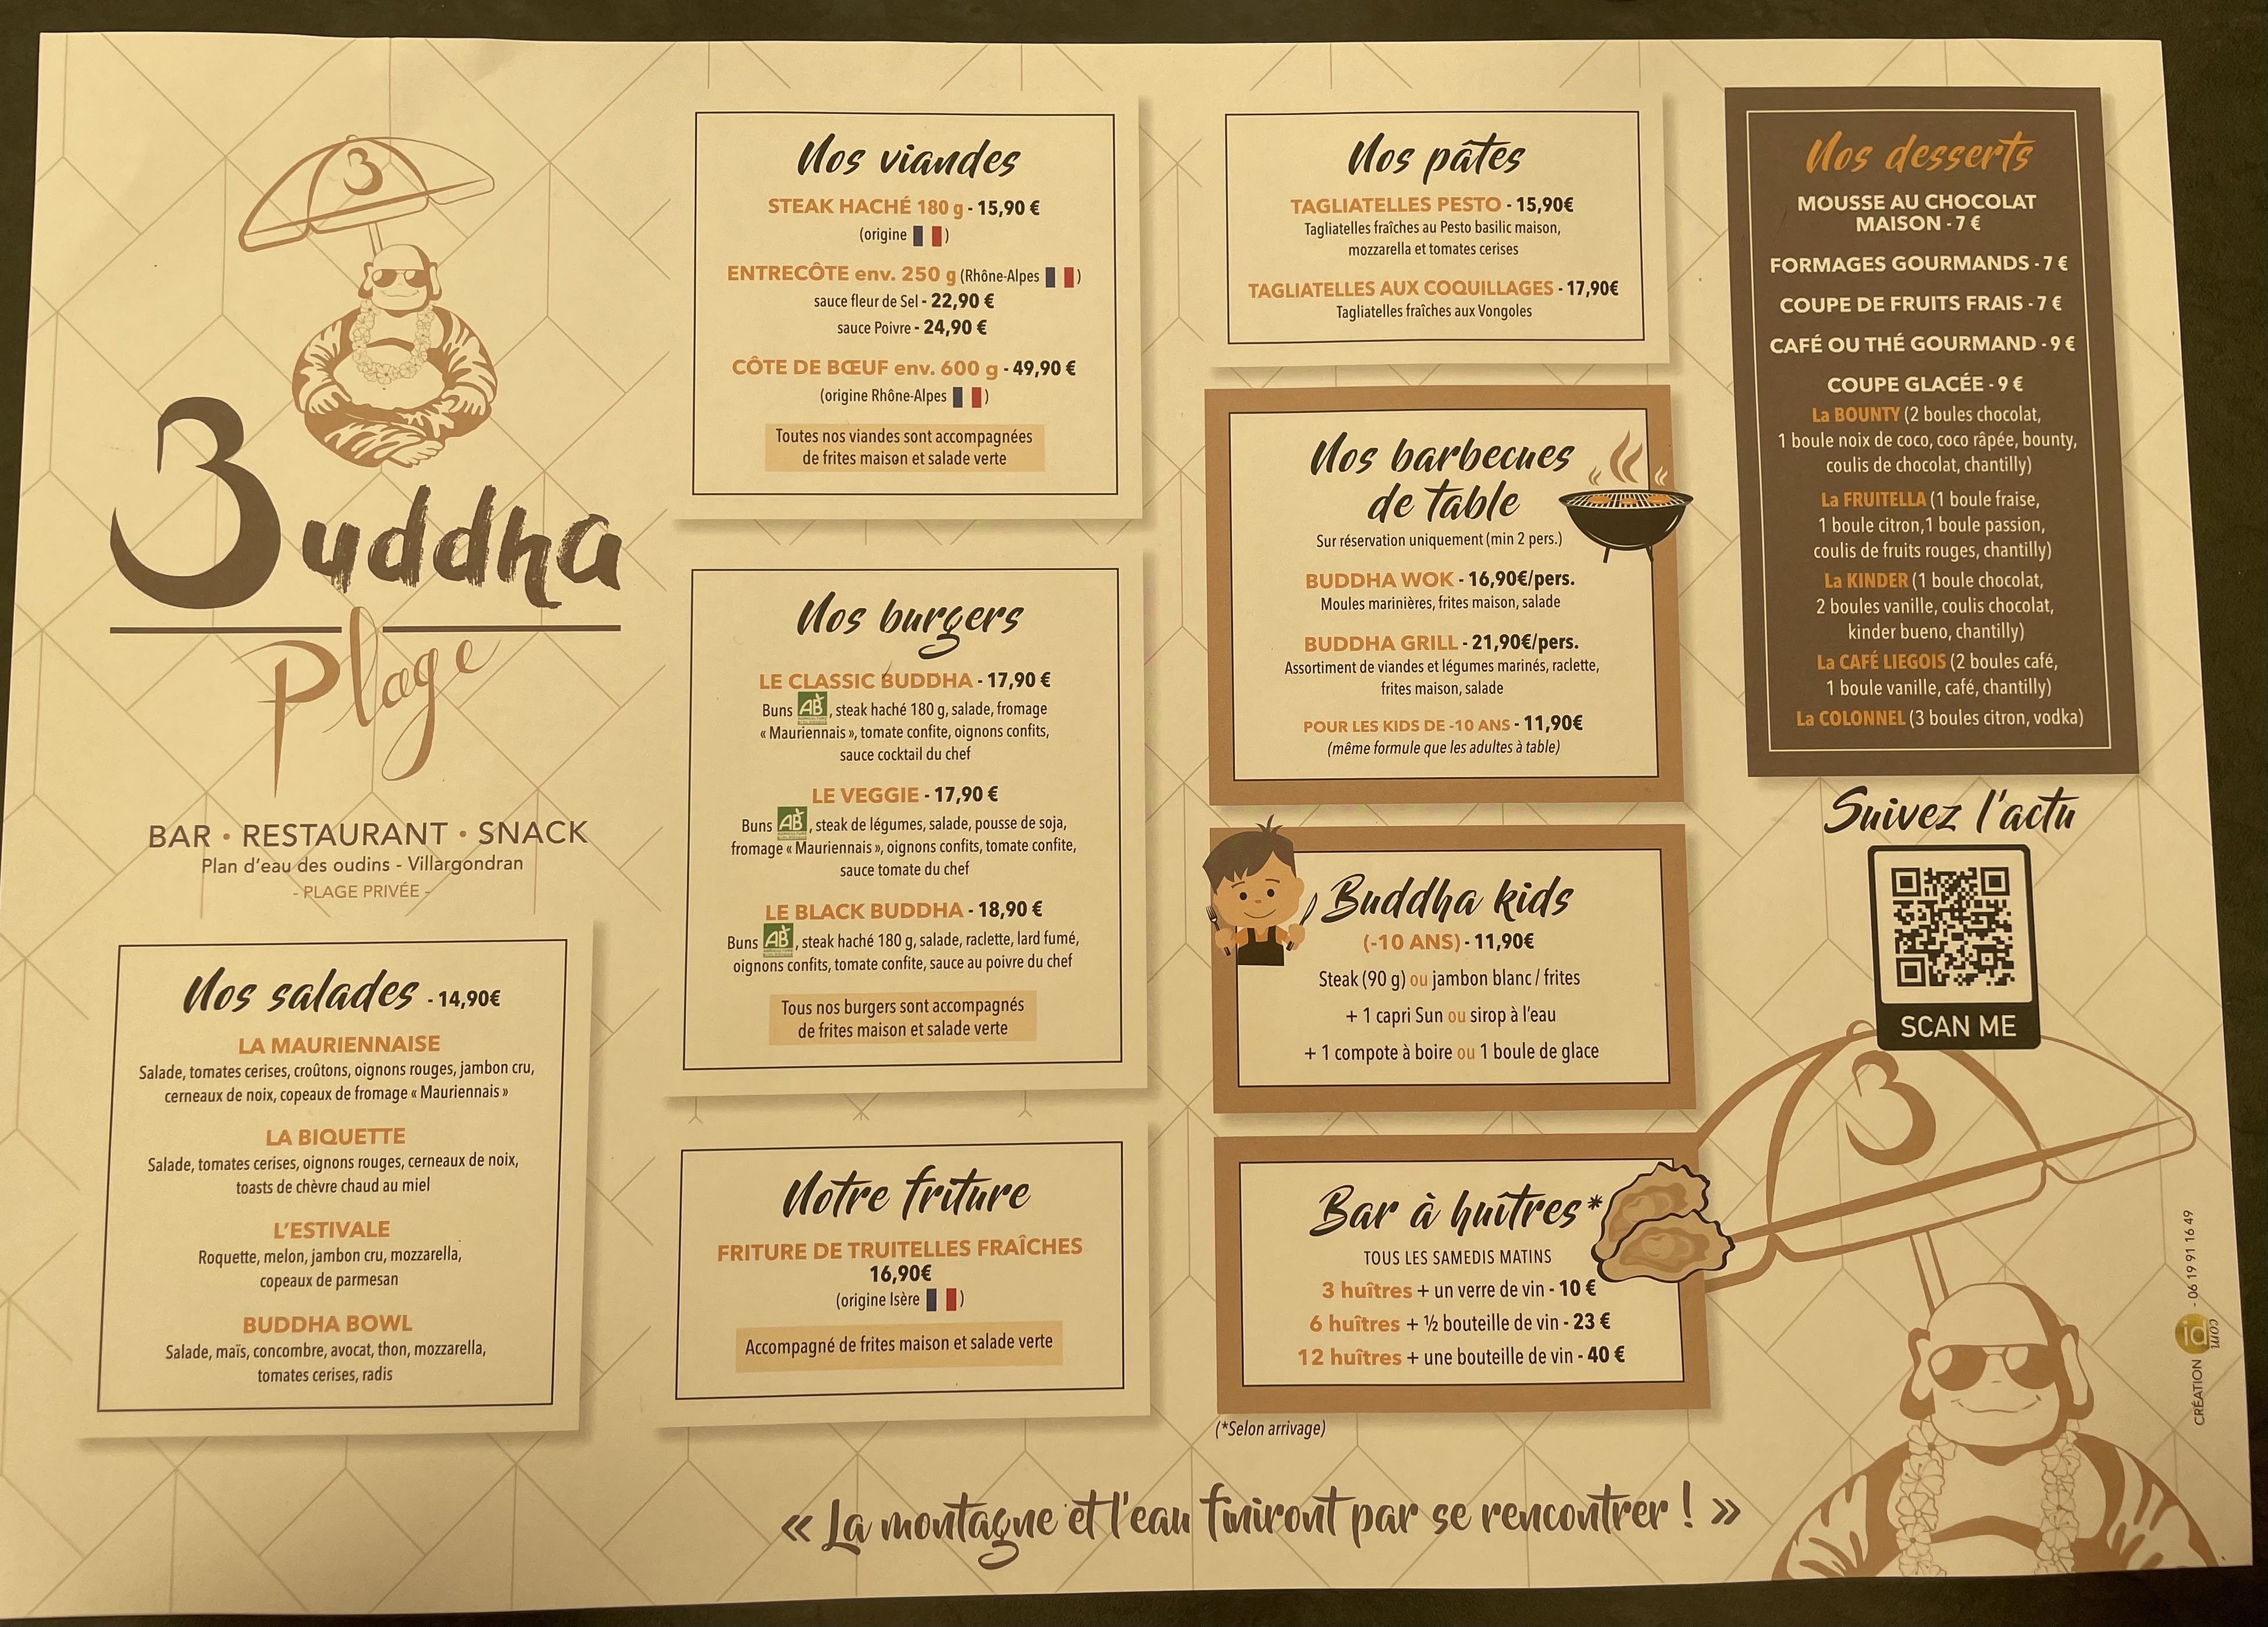 3
3uddha
Plage
BAR • RESTAURANT • SNACK
Plan d'eau des oudins - Villargondran
- PLAGE PRIVÉE -
Nos salades - 14,90€
LA MAURIENNAISE
Salade, tomates cerises, croûtons, oignons rouges, jambon cru,
cerneaux de noix, copeaux de fromage « Mauriennais »
LA BIQUETTE
Salade, tomates cerises, oignons rouges, cerneaux de noix,
toasts de chèvre chaud au miel
L'ESTIVALE
Roquette, melon, jambon cru, mozzarella,
copeaux de parmesan
BUDDHA BOWL
Salade, maïs, concombre, avocat, thon, mozzarella,
tomates cerises, radis
Nos viandes
STEAK HACHÉ 180 g - 15,90 €
(origine )
ENTRECÔTE env. 250 g (Rhône-Alpes )
sauce fleur de Sel - 22,90 €
sauce Poivre - 24,90 €
CÔTE DE BŒUF env. 600 g - 49,90 €
(origine Rhône-Alpes )
Toutes nos viandes sont accompagnées
de frites maison et salade verte
Nos burgers
LE CLASSIC BUDDHA - 17,90 €
Buns AB, steak haché 180 g, salade, fromage
« Mauriennais », tomate confite, oignons confits,
sauce cocktail du chef
LE VEGGIE - 17,90 €
Buns AB, steak de légumes, salade, pousse de soja,
fromage « Mauriennais », oignons confits, tomate confite,
sauce tomate du chef
LE BLACK BUDDHA - 18,90 €
Buns AB, steak haché 180 g, salade, raclette, lard fumé,
oignons confits, tomate confite, sauce au poivre du chef
Tous nos burgers sont accompagnés
de frites maison et salade verte
Notre friture
FRITURE DE TRUITELLES FRAÎCHES
16,90€
(origine Isère )
Accompagné de frites maison et salade verte
Nos pâtes
TAGLIATELLES PESTO - 15,90€
Tagliatelles fraîches au Pesto basilic maison,
mozzarella et tomates cerises
TAGLIATELLES AUX COQUILLAGES - 17,90€
Tagliatelles fraîches aux Vongoles
Nos barbecues
de table
Sur réservation uniquement (min 2 pers.)
BUDDHA WOK - 16,90€/pers.
Moules marinières, frites maison, salade
BUDDHA GRILL - 21,90€/pers.
Assortiment de viandes et légumes marinés, raclette,
frites maison, salade
POUR LES KIDS DE -10 ANS - 11,90€
(même formule que les adultes à table)
Buddha kids
(-10 ANS) - 11,90€
Steak (90 g) ou jambon blanc / frites
+ 1 capri Sun ou sirop à l'eau
+ 1 compote à boire ou 1 boule de glace
Bar à huîtres*
TOUS LES SAMEDIS MATINS
3 huîtres + un verre de vin - 10 €
6 huîtres + ½ bouteille de vin - 23 €
12 huîtres + une bouteille de vin - 40 €
(*Selon arrivage)
Nos desserts
MOUSSE AU CHOCOLAT
MAISON - 7 €
FORMAGES GOURMANDS - 7 €
COUPE DE FRUITS FRAIS - 7 €
CAFÉ OU THÉ GOURMAND - 9 €
COUPE GLACÉE - 9 €
La BOUNTY (2 boules chocolat,
1 boule noix de coco, coco râpée, bounty,
coulis de chocolat, chantilly)
La FRUITELLA (1 boule fraise,
1 boule citron,1 boule passion,
coulis de fruits rouges, chantilly)
La KINDER (1 boule chocolat,
2 boules vanille, coulis chocolat,
kinder bueno, chantilly)
La CAFÉ LIEGOIS (2 boules café,
1 boule vanille, café, chantilly)
La COLONNEL (3 boules citron, vodka)
Suivez l'actu
SCAN ME
3
CRÉATION id com - 06 19 91 16 49
« La montagne et l'eau finiront par se rencontrer ! »